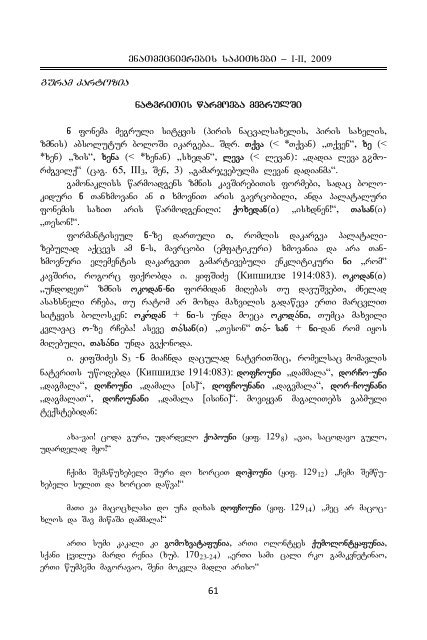 ენათმეცნიერების საკითხები – I-II, 2009
გურამ კარტოზია
ნატვრითის წარმოება მეგრულში
ნ ფონემა მეგრული სიტყვის (პირის ნაცვალსახელის, პირის სახელის,
ზმნის) აბსოლუტურ ბოლოში იკარგება.. შდრ. თქვა (< *თქვან) „თქვენ“, ზე (<
*ხენ) „ზის“, ხენა (< *ხენან) „სხედან“, ლევა (< ლევან): „დადია ლევა გგმო-
რძგვილქ“ (ცაგ. 65, III₃, შენ, 3) „გამარჯვებულმა ლევან დადიანმა“.
გამონაკლისს წარმოადგენს ზმნის კავშირებითის ფორმები, სადაც ბოლო-
კიდური ნ თანხმოვანი ან ი ხმოვნით არის გავრცობილი, ანდა პალატალური
ფონემის სახით არის წარმოდგენილი: ქოზედან(ი) „ისხდნენ!“, თასან(ი)
„თესონ!“.
ფორმანტისეულ ნ-ზე დართული ი, რომლის დაკარგვა პალატალი-
ზებულად აქცევს ამ ნ-ს, მავრცობი (ემფატიკური) ხმოვანია და არა თან-
ხმოვნური ელემენტის დაკარგვით გამარტივებული ენკლიტიკური ნი „რომ“
კავშირი, როგორც ფიქრობდა ი. ყიფშიძე (Кипшидзе 1914:083). ოკოდან(ი)
„უნდოდეთ“ ზმნის ოკოდან-ნი ფორმიდან მიღებას თუ დავუშვებთ, ძნელად
ასახსნელი რჩება, თუ რატომ არ მოხდა მახვილის გადაწევა ერთი მარცვლით
სიტყვის ბოლოსკენ: ოკო́დან + ნი-ს უნდა მოეცა ოკოდა́ნი, თუმცა მახვილი
კვლავაც ო-ზე რჩება! ასევე თა́სან(ი) „თესონ“ თა́- სან + ნი-დან რომ იყოს
მიღებული, თასა́ნი უნდა გვქონოდა.
ი. ყიფშიძეს S₃ -ნ მიაჩნდა დაცულად ნატვრითშიც, რომელსაც მომავლის
ნატვრითს უწოდებდა (Кипшидзе 1914:083): დოფჩოუნი „დამმალა“, დორჩო-უნი
„დაგმალა“, დოჩოუნი „დამალა [ის]“, დოფჩოუნანი „დაგვმალა“, დორ-ჩოუნანი
„დაგმალათ“, დოჩოუნანი „დამალა [ისინი]“. მოვიყვან მაგალითებს გაბმული
ტექსტებიდან:
ახა-ვაი! ცოდა გური, უდარდელო ქოპოუნი (ყიფ. 129₈) „ვაი, საცოდავო გულო,
უდარდელად მყო!“
ჩქიმი შემაწუხებელი შური დო ხორცით დოჭოუნი (ყიფ. 129₁₂) „ჩემი შემწუ-
ხებელი სულით და ხორცით დაწვა!“
მათი ვა მაცოცხლასი დო უჩა დიხას დოფჩოუნი (ყიფ. 129₁₄) „მეც არ მაცოც-
ხლოს და შავ მიწაში დამმალა!“
ართი სუმი კაკალი კი გომოხვატაფუნია, ართი ოლონტყეს ქუმოლონტყაფუნია,
სქანი ყვილუა მარდი რენია (ხუბ. 170₂₃₋₂₄) „ერთი სამი ცალი რკო გამაკვნეტინაო,
ერთი წუმპეში მაგორავაო, შენი მოკვლა მადლი არისო“
61